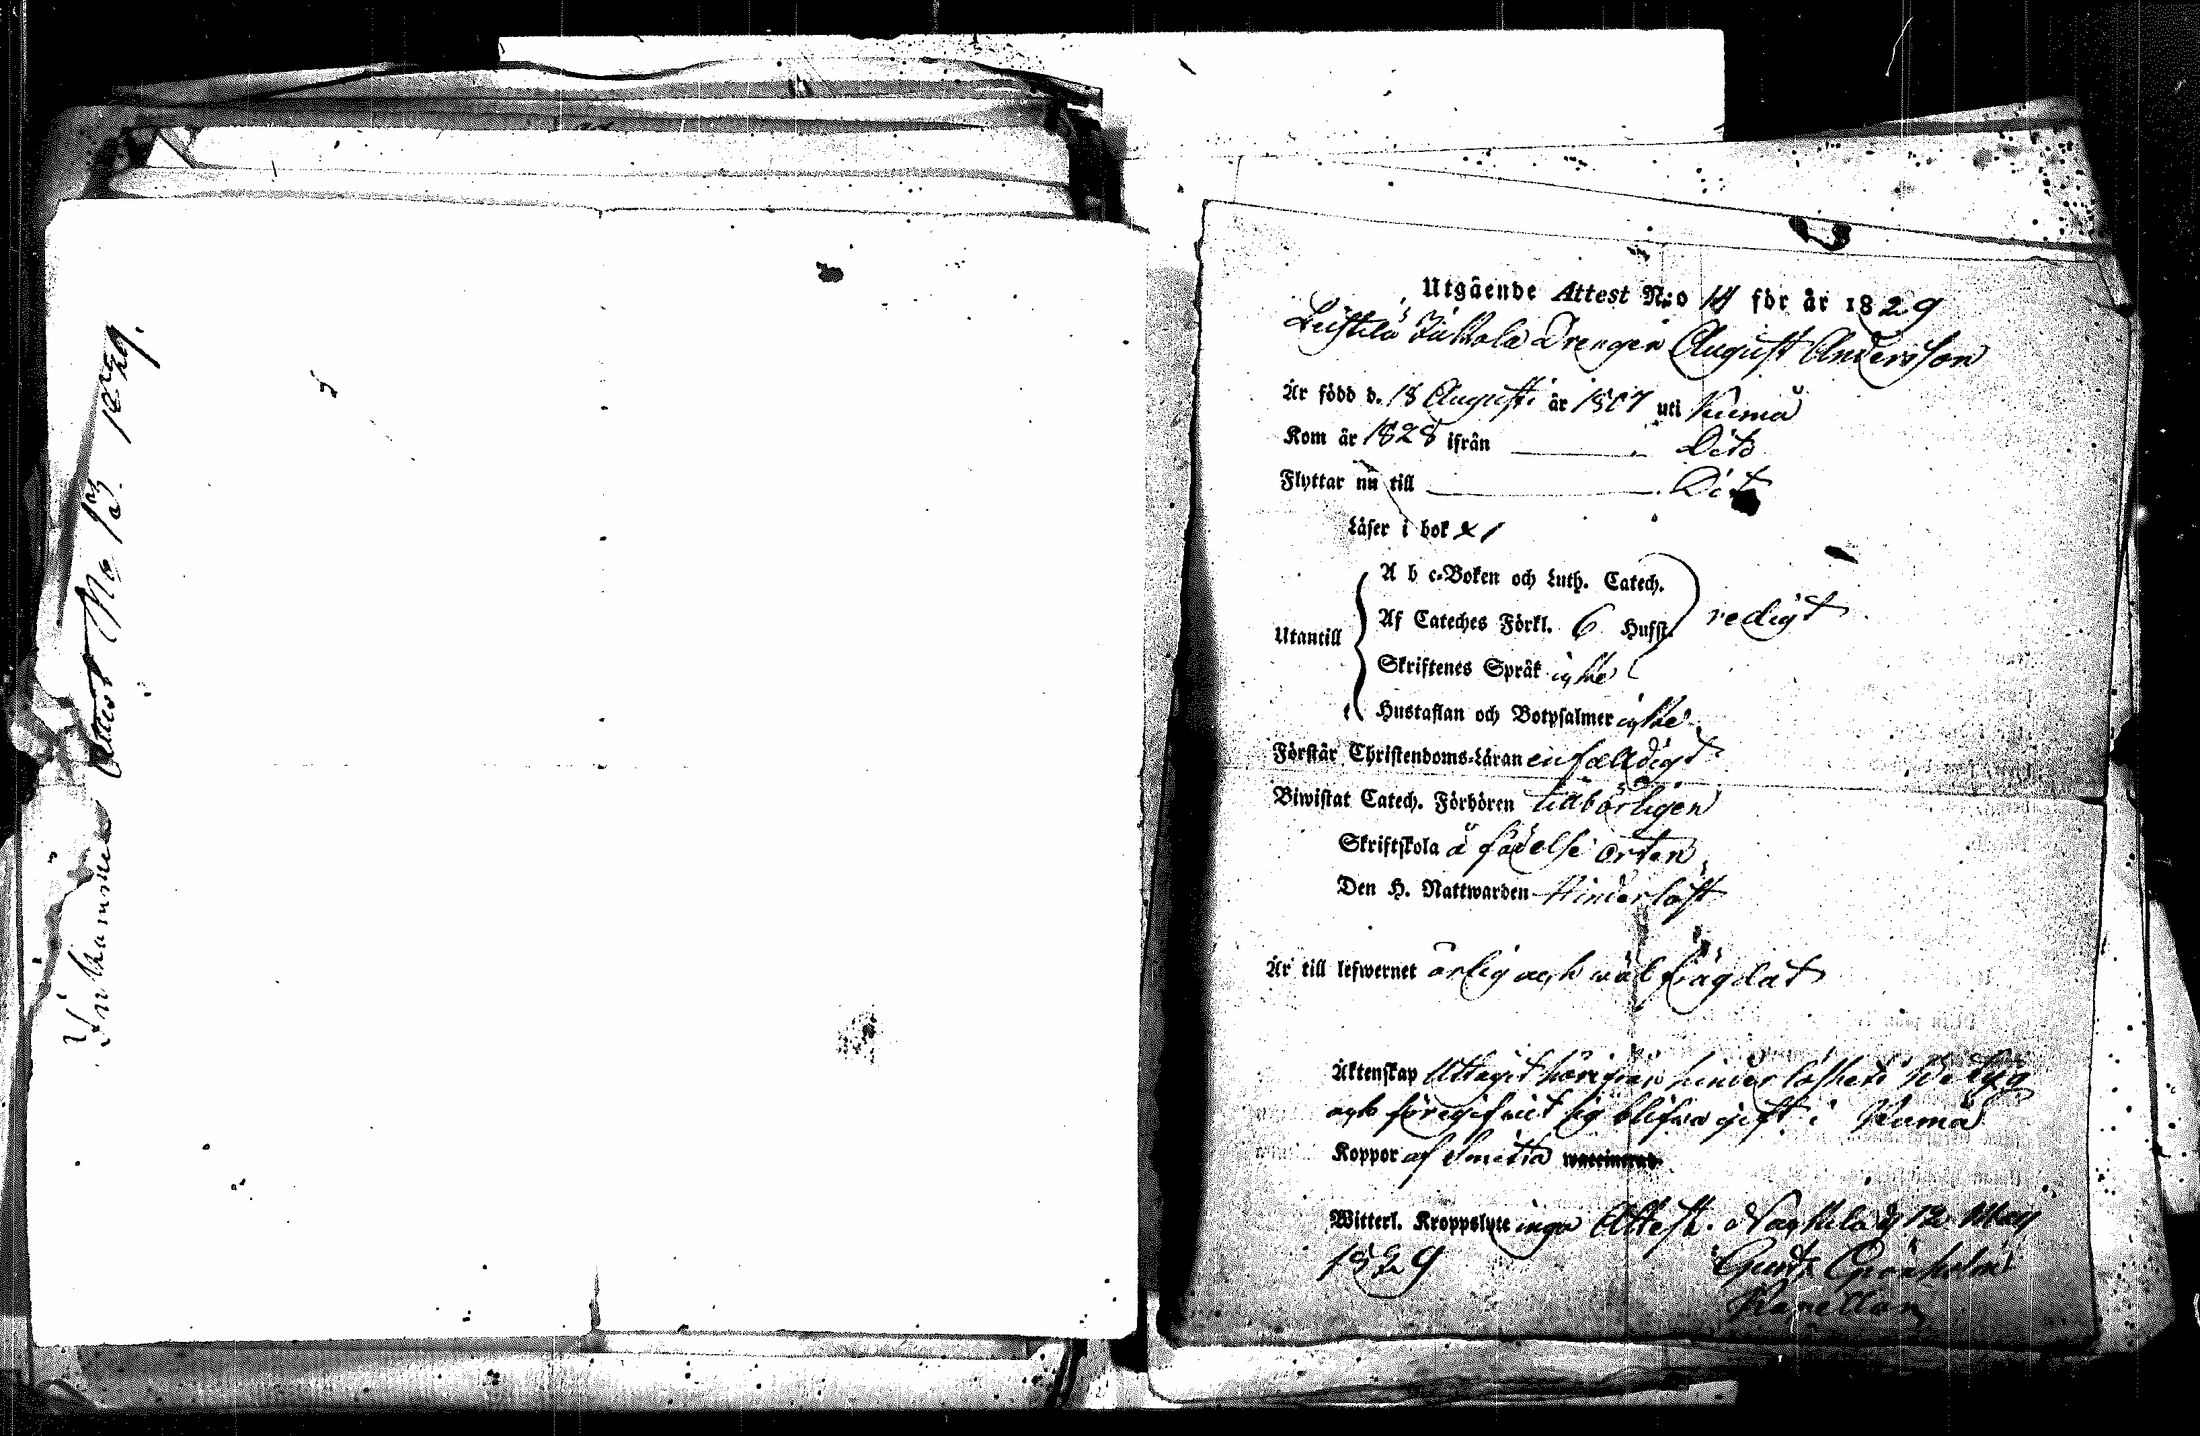 Inkommne Attest No 13. 1829.
Utgående Attest N:o 14 för år 1829
Leistilä Juckola Drengen August Andersson
Är född d. 18 Augusti år 1807 uti Kumå
Kom år 1828 ifrån Dito
Flyttar nu till Dito
Läser i bok x 1
A b c-Boken och Luth. Catech.
Utantill Af Cateches Förkl. 6 Hufst. redigt
Skriftenes Språk icke
Hustaflan och Botpsalmer icke
Förstår Christendoms-Läran enfaldigt
Biwistat Catech. Förhören tillbörligen
Skriftskola å födelse orten
Den H. Nattwarden Hinderlöst
Är till lefwernet ärlig och wäl frägdat
Äktenskap Uttagit hinderlöshets Betyg
och föregifwit sig blifwa gift i Kumå
Koppor af Smitta waccinerad
Witterl. Kroppslyte inga Attest. Nackila d 12 May
1829 Grönholm
Kapellan